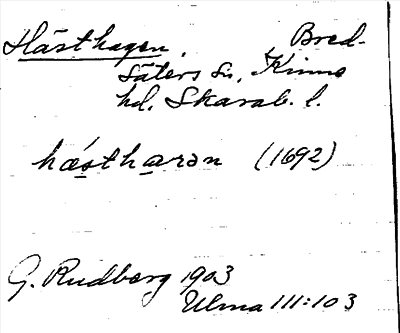 Hästhagen. Bred-
säters sn, Kinne
hd, Skarab. l.
hǽsthaɡən (1692)
G. Rudberg 1903
Ulma 111:103